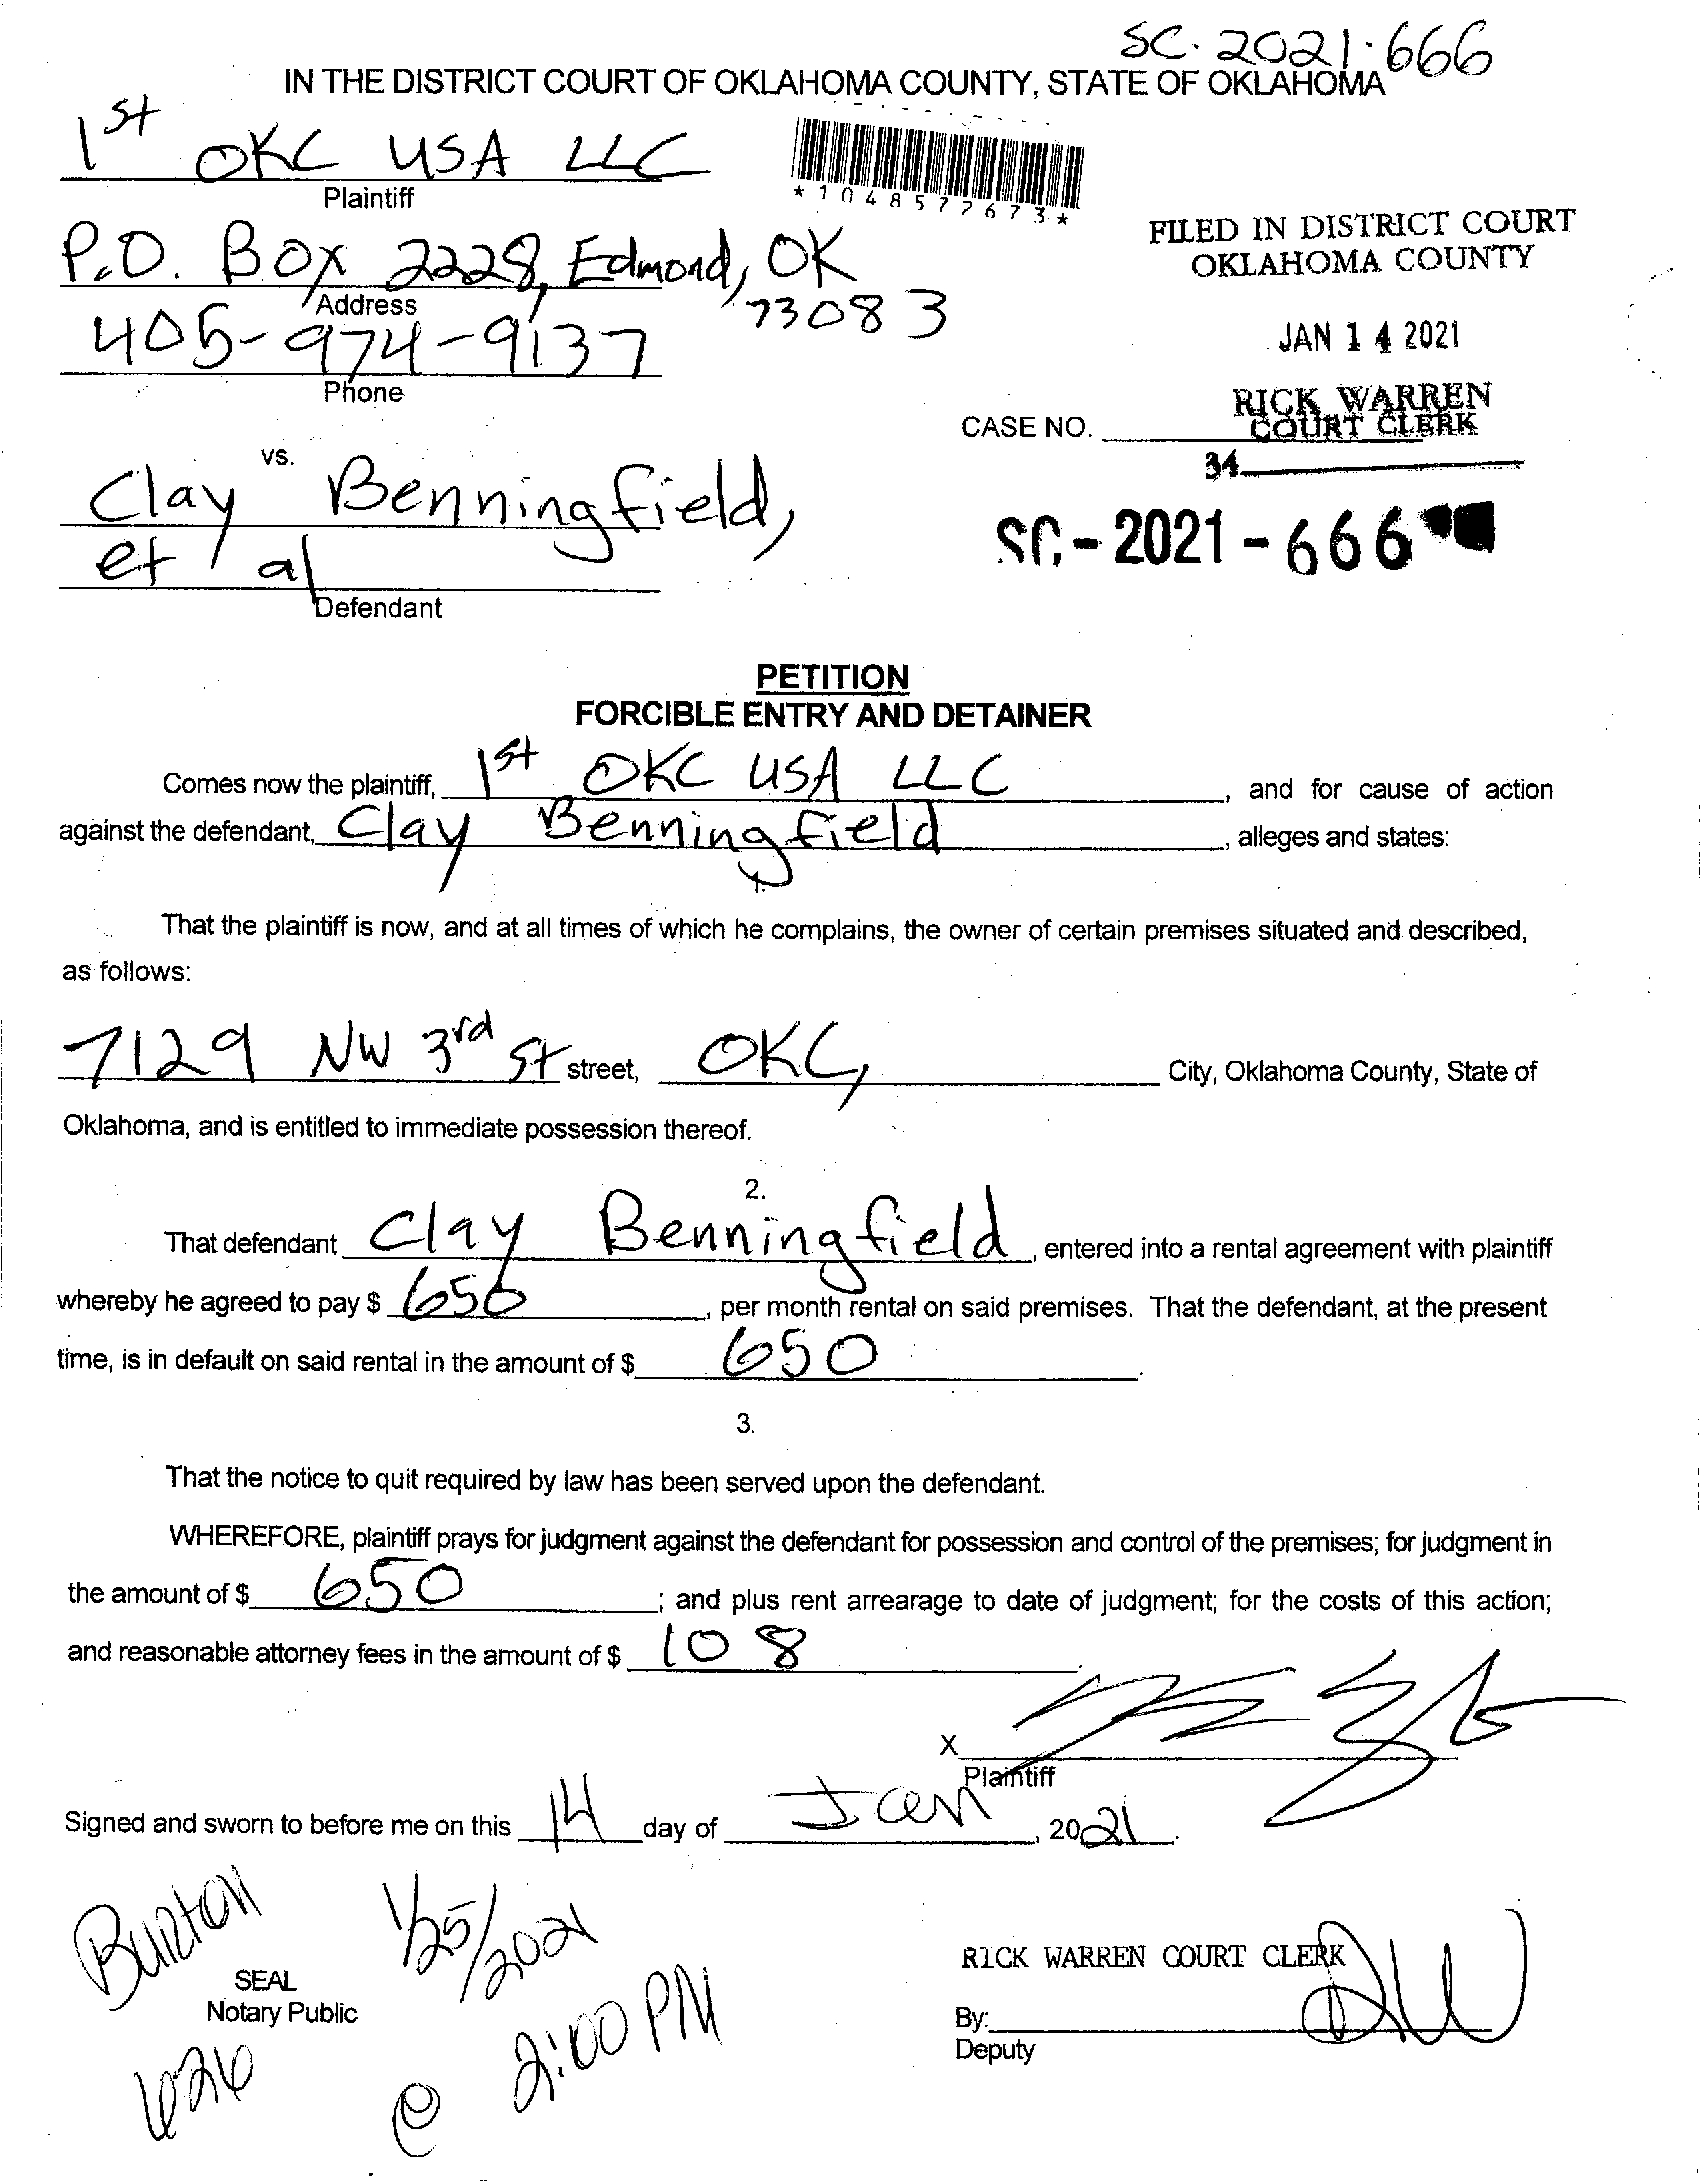 SC-2021-666
IN THE DISTRICT COURT OF OKLAHOMA COUNTY, STATE OF OKLAHOMA
1st OKC USA LLC
Plaintiff
*1048577673*
P.O. Box 2228, Edmond, OK
73083
Address
FILED IN DISTRICT COURT
OKLAHOMA COUNTY
405-974-9137
Phone
JAN 14 2021
RICK WARREN
COURT CLERK
CASE NO.
34
vs.
Clay Benningfield,
et al
Defendant
SC-2021-666
PETITION
FORCIBLE ENTRY AND DETAINER
Comes now the plaintiff, 1st OKC USA LLC, and for cause of action
against the defendant, Clay Benningfield, alleges and states:
1.
That the plaintiff is now, and at all times of which he complains, the owner of certain premises situated and described,
as follows:
7129 NW 3rd St street, OKC, City, Oklahoma County, State of
Oklahoma, and is entitled to immediate possession thereof.
2.
That defendant Clay Benningfield, entered into a rental agreement with plaintiff
whereby he agreed to pay $ 650, per month rental on said premises. That the defendant, at the present
time, is in default on said rental in the amount of $ 650.
3.
That the notice to quit required by law has been served upon the defendant.
WHEREFORE, plaintiff prays for judgment against the defendant for possession and control of the premises; for judgment in
the amount of $ 650; and plus rent arrearage to date of judgment; for the costs of this action;
and reasonable attorney fees in the amount of $ 108.
X
Plaintiff
Signed and sworn to before me on this 14 day of Jan, 2021.
Burton 1/25/2021
SEAL
Notary Public
626 @ 2:00 PM
RICK WARREN COURT CLERK
By:
Deputy